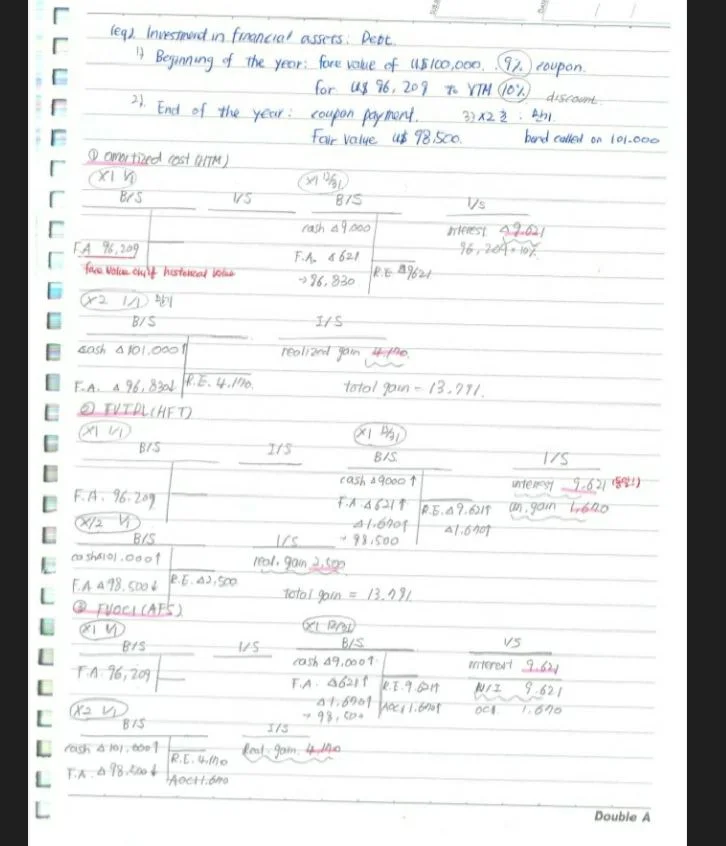 (eg). Investment in financial assets: Debt.
1) Beginning of the year: face value of U$100,000. 9% coupon.
for U$ 96,209 to YTM 10% discount
2). End of the year: coupon payment. 3) X2초: 만기
Fair Value U$ 98,500. bond called on 101.000
① amortized cost (HTM)
X1 1/1 X1 12/31
B/S I/S B/S I/S
cash Δ9,000 interest Δ9.621
F.A 96,209 F.A. Δ621 96,209*10%
face value only historical value →96,830 R.E Δ9621
X2 1/1 만기
B/S I/S
cash Δ101.000↑ realized gain 4,170.
F.A. Δ96,830↓ R.E. 4,170. total gain = 13,791.
② FVTPL(HFT)
X1 1/1 X1 12/31
B/S I/S B/S I/S
cash Δ9000↑ interest 9,621 (동일!)
F.A. 96.209 F.A Δ621↑ R.E. Δ9.621↑ un. gain 1,670
X2 1/1 Δ1.670↑ Δ1.670↑
B/S I/S → 98,500
cash Δ101.000↑ real. gain 2,500
F.A Δ98,500↓ R.E. Δ2,500 total gain = 13,791.
③ FVOCI(AFS)
X1 1/1 X1 12/31
B/S I/S B/S I/S
cash Δ9,000↑ interest 9.621
F.A. 96,209 F.A. Δ621↑ R.E 9.621↑ N/I 9.621
Δ1.670↑ AOCI 1.670↑ OCI. 1.670
X2 1/1 → 98,500
B/S I/S
cash Δ101,000↑ R.E. 4.170 Real. gain 4,170
F.A. Δ98.500↓ AOCI 1.670
Double A